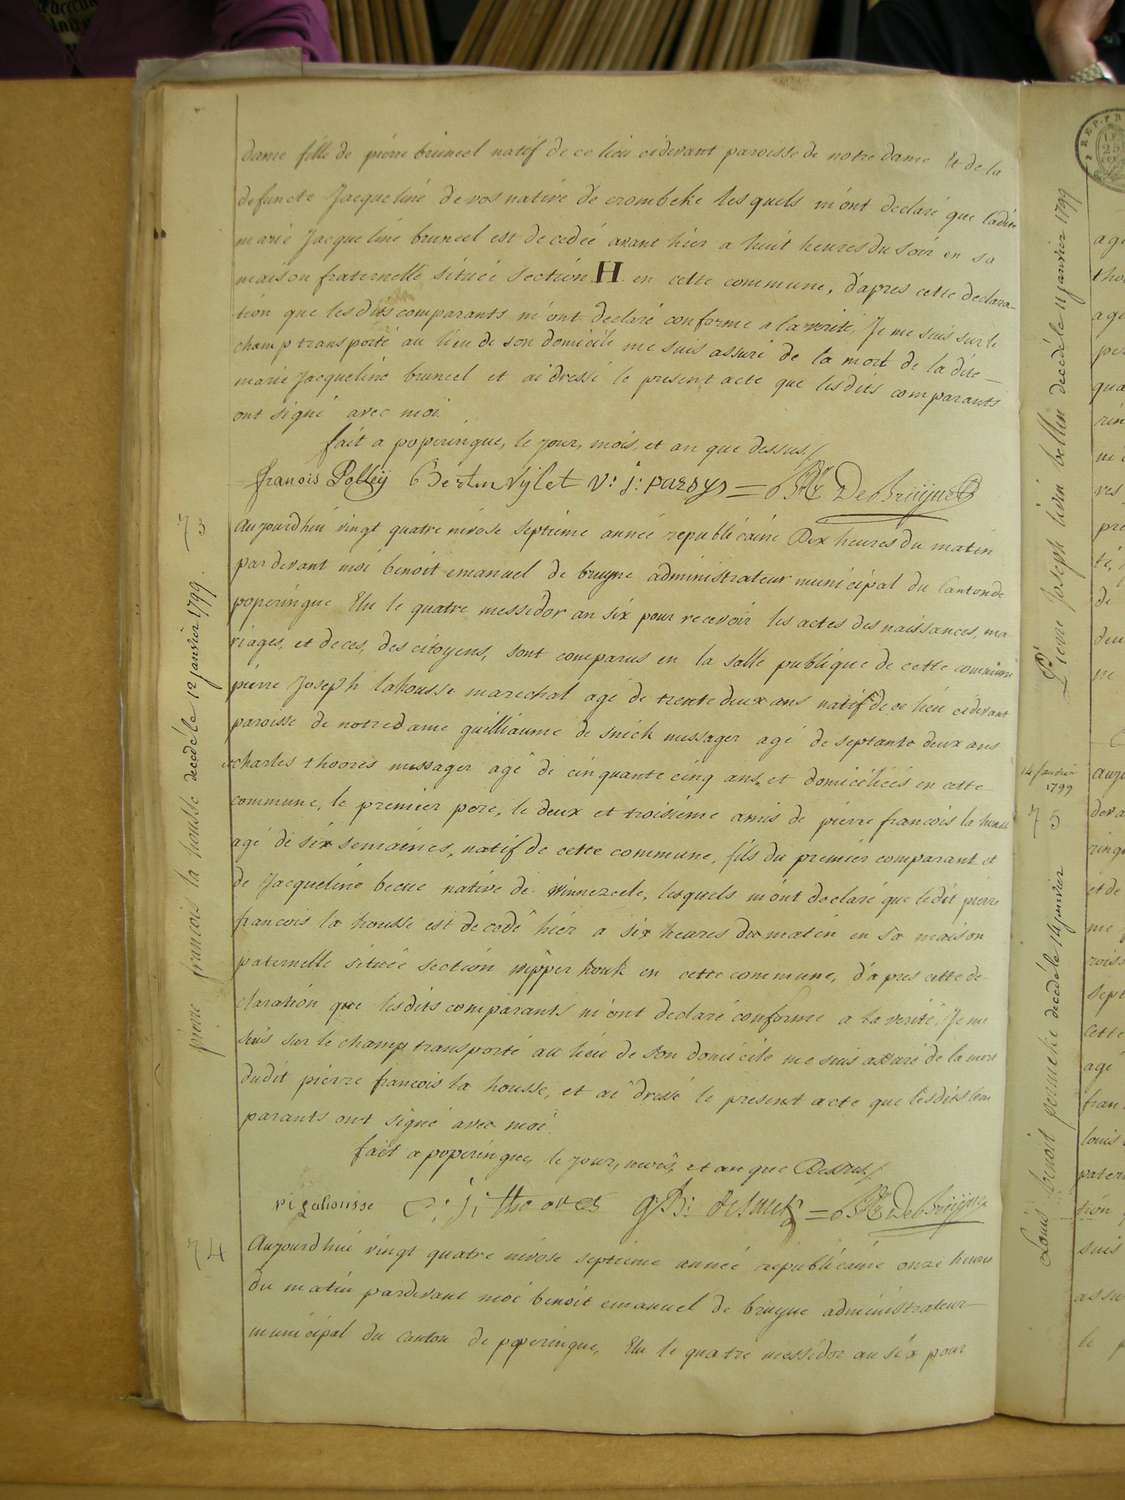 dame fille de pierre bruneel natif de ce lieu cidevant paroisse de notre dame Et de la
defuncte Jacqueline de vos native de crombeke lesquels m'ont declaré que ladite
marie Jacqueline bruneel est decedeé avant hier a huit heures du soir en sa
maison fraternelle situeé section H en cette commune, d'apres cette declara-
tion que lesdits comparants m'ont declaré conforme a la verité, Je me suis sur le
champ transporté au lieu de son domicile me suis assuré de la mort de la dite
marie Jacqueline bruneel et ai dressé le present acte que lesdits comparants
ont signé avec moi
fait a poperingue, le jour, mois, et an que dessus/
francis Polley Bertin Vylet v: j: parsys = B.E. DeBruyne
73
Aujourdhui vingt quatre nivose septieme année republicaine Dix heures du matin
pardevant moi benoit emanuel de bruyne administrateur municipal du Canton de
poperingue Elu le quatre messidor an six pour recevoir les actes des naissances, ma
riages, et deces, des citoyens, sont comparus en la salle publique de cette commune
pierre Joseph lahousse marechal agé de trente deux ans natif de ce lieu cidevant
paroisse de notredame guilliaume de snick messager agé de septante deux ans
et charles thoores messager agé de cinquante cinq ans, et domiciliés en cette
commune, le premier pere, le deux et troisieme amis de pierre francois la housse
agé de six semaines, natif de cette commune, fils du premier comparant et
de Jacqueline becue native de Winnezeele, lesquels m'ont declaré que ledit pierre
francois la housse est decedé hier a six heures du matin en sa maison
paternelle situeé section wipper houk en cette commune, d'apres cette de-
claration que lesdits comparants m'ont declaré conforme a la verité, Je me
suis sur le champ transporté au lieu de son domicile me suis assuré de la mort
dudit pierre francois la housse, et ai dressé le present acte que lesdits com
parants ont signé avec moi
fait a poperingue, le jour, mois, et an que Dessus/
p j lahousse C: j: thoores g: B: desnick = B.E. DeBruyne
74
Aujourdhui vingt quatre nivose septieme année republicaine onze heures
du matin pardevant moi benoit emanuel de bruyne administrateur
municipal du canton de poperingue, Elu le quatre messidor an six pour
pierre francois la housse decédé le 12 janvier 1799.
Pierre Joseph livin bellin decédé le 11 janvier 1799
14 janvier
1799
75
Louis benoit decédé le 14 janvier